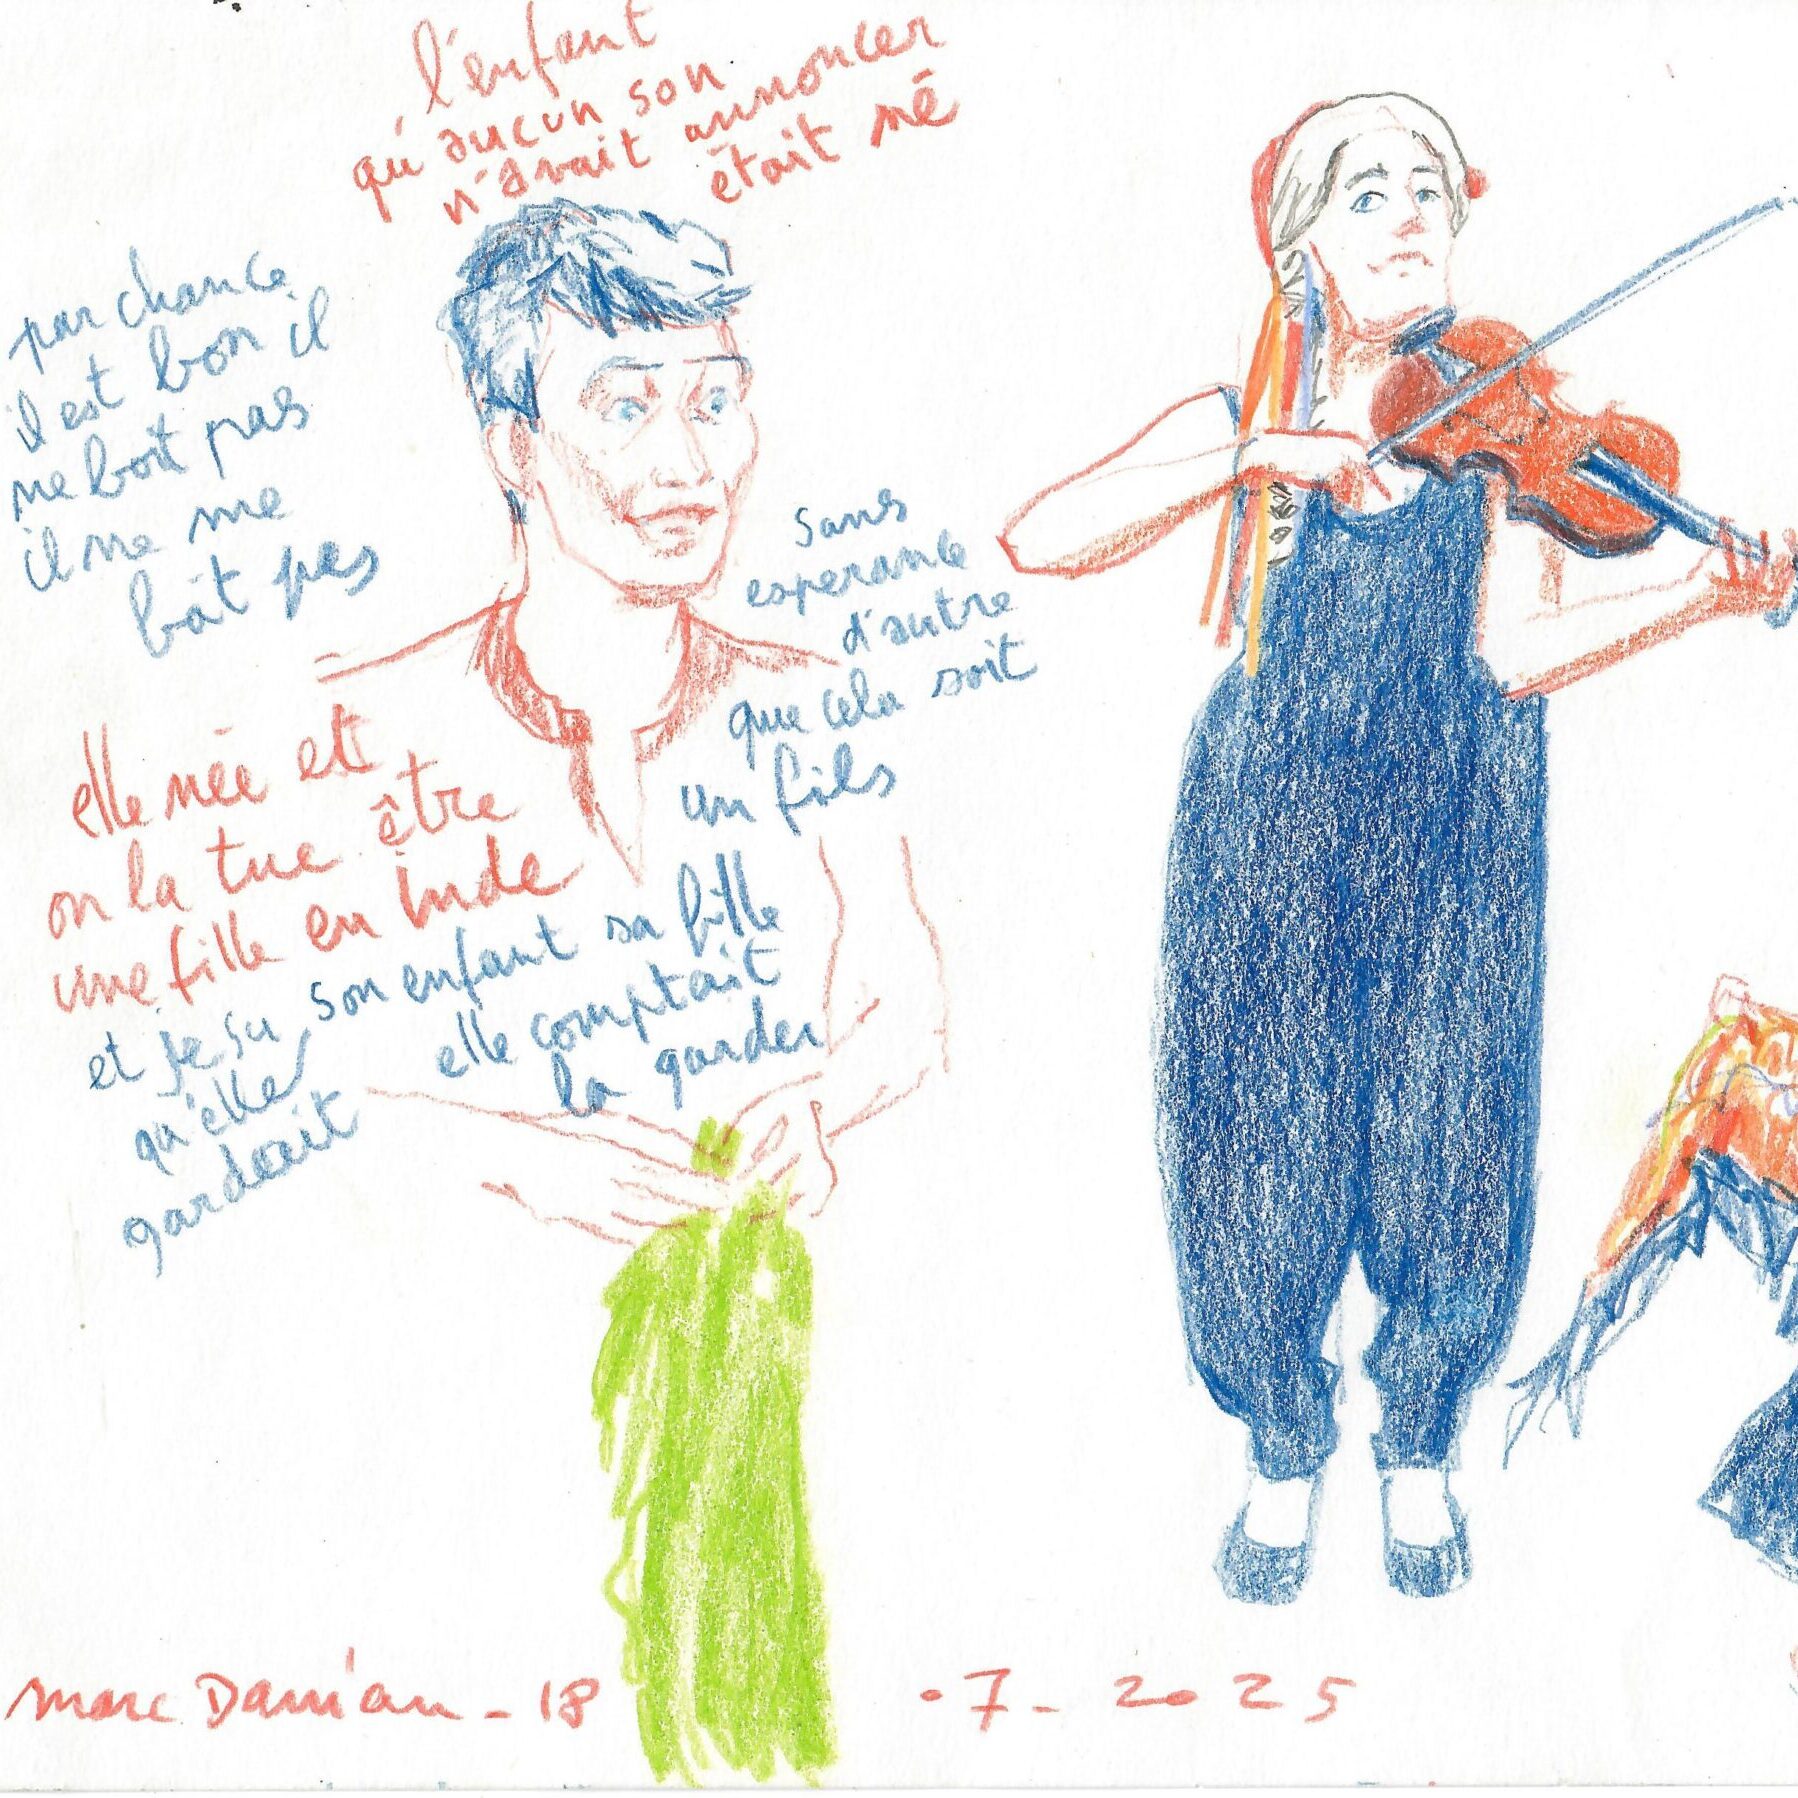 l'enfant
qu'aucun son
n'avait annoncer
était né
par chance
il est bon il
ne boit pas
il ne me
boit pas
sans
esperance
d'autre
que cela soit
un fils
elle née et
on la tue être
une fille en inde
et je su
qu'elle
garderait
son enfant sa fille
elle comptait
la garder
marc Damian - 18 . 7 - 2025